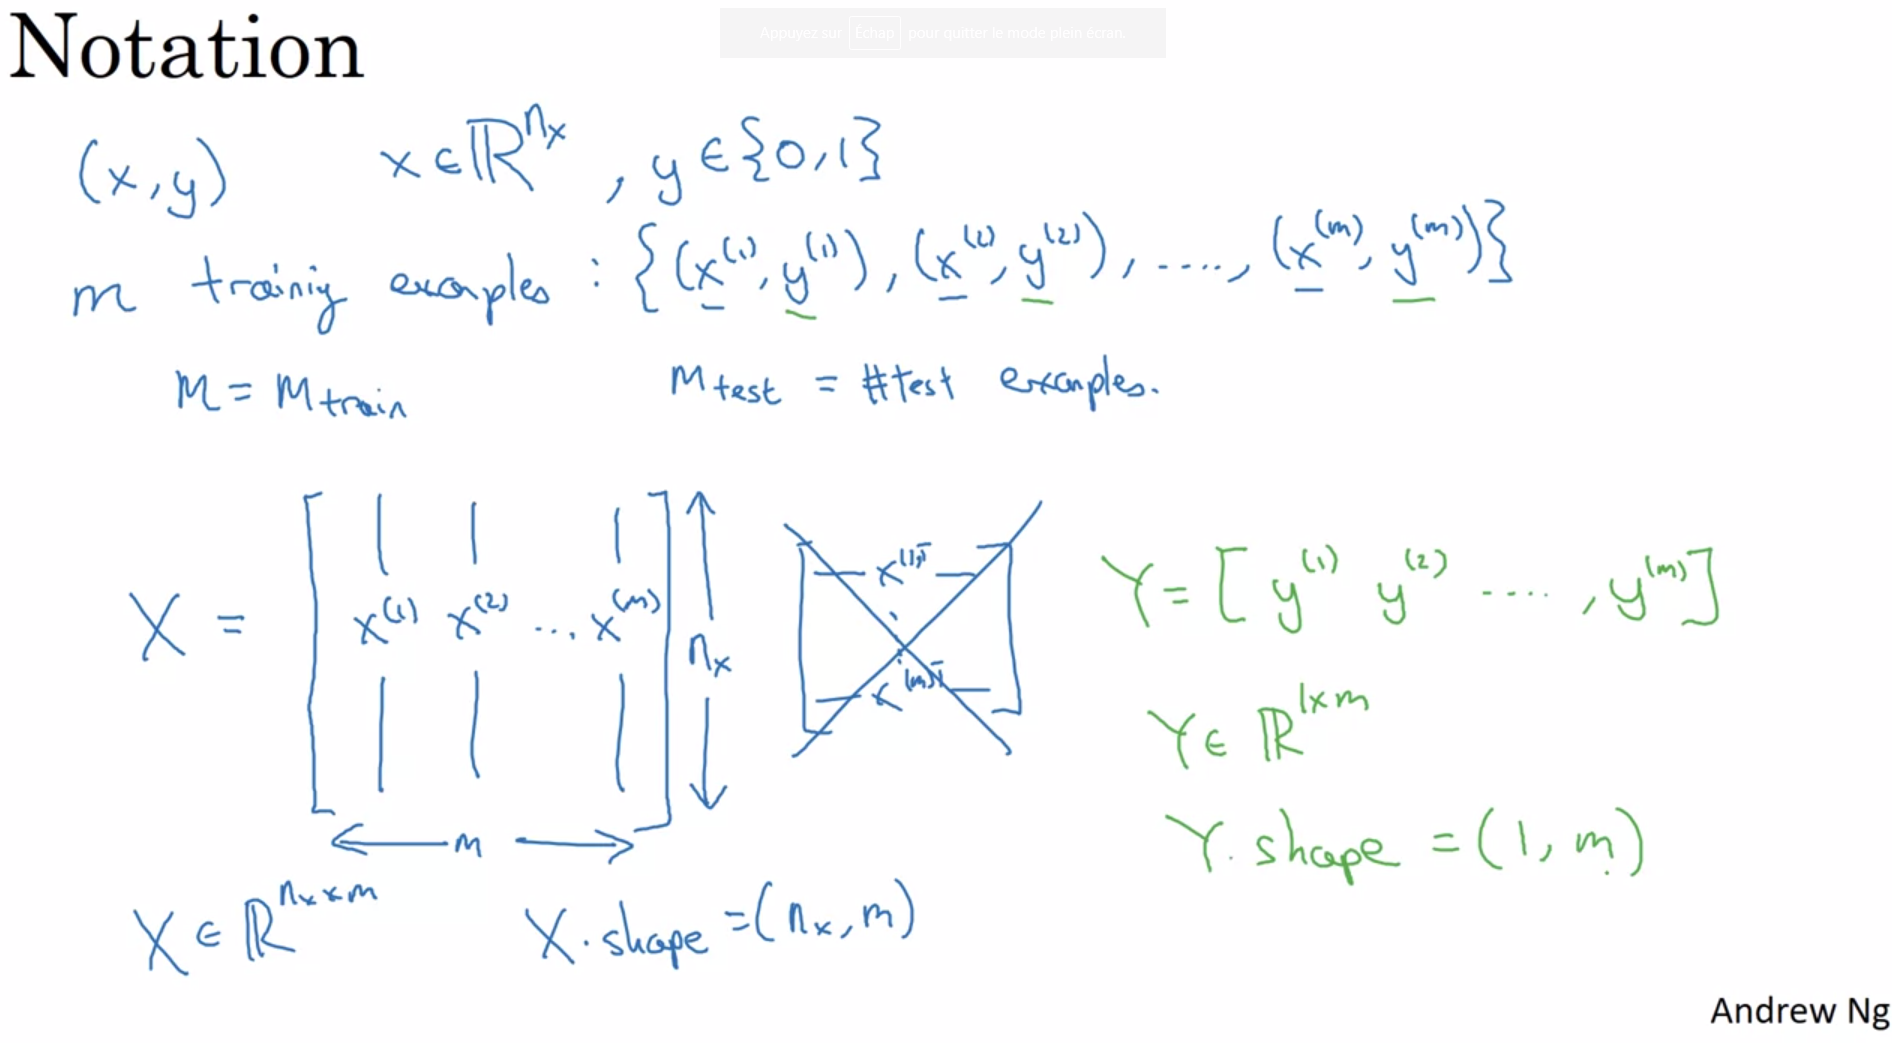 Notation
Appuyez sur Échap pour quitter le mode plein écran.
(x, y) x ∈ ℝ^{n_x} , y ∈ {0, 1}
m training examples : {(x^{(1)}, y^{(1)}), (x^{(2)}, y^{(2)}), ...., (x^{(m)}, y^{(m)})}
M = M_{train} M_{test} = #test examples.
X = [ x^{(1)} x^{(2)} ... x^{(m)} ] n_x
m
x^{(1)T}
⋮
x^{(m)T}
X ∈ ℝ^{n_x × m} X.shape = (n_x, m)
Y = [ y^{(1)} y^{(2)} .... , y^{(m)} ]
Y ∈ ℝ^{1×m}
Y.shape = (1, m)
Andrew Ng